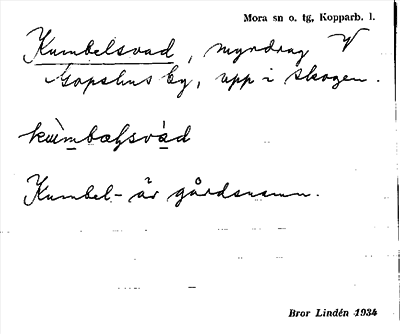 Mora sn o. tg, Kopparb. l.
Kumbelsvad, myrdrag V
Gopshus by, upp i skogen.
kùmbæl̦svàd
Kumbel- är gårdsnamn.
Bror Lindén 1934